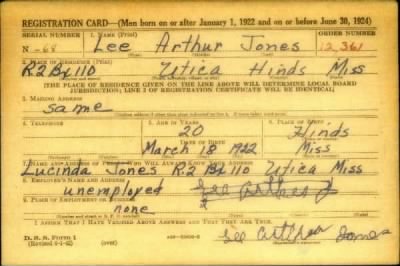 REGISTRATION CARD—(Men born on or after January 1, 1922 and on or before June 30, 1924)
SERIAL NUMBER 1. NAME (Print) ORDER NUMBER
N-68 Lee Arthur Jones 12,361
(First) (Middle) (Last)
2. PLACE OF RESIDENCE (Print)
R2 Bx 110 Utica Hinds Miss
(THE PLACE OF RESIDENCE GIVEN ON THE LINE ABOVE WILL DETERMINE LOCAL BOARD
JURISDICTION; LINE 2 OF REGISTRATION CERTIFICATE WILL BE IDENTICAL)
3. MAILING ADDRESS
Same
4. TELEPHONE 5. AGE IN YEARS 6. PLACE OF BIRTH
20 Hinds
DATE OF BIRTH
March 18 1922 Miss
7. NAME AND ADDRESS OF PERSON WHO WILL ALWAYS KNOW YOUR ADDRESS
Lucinda Jones R2 Bx 110 Utica Miss
8. EMPLOYER'S NAME AND ADDRESS
unemployed
9. PLACE OF EMPLOYMENT OR BUSINESS
none
I AFFIRM THAT I HAVE VERIFIED ABOVE ANSWERS AND THAT THEY ARE TRUE.
D. S. S. Form 1
(Revised 6-1-42) (over)
Jones